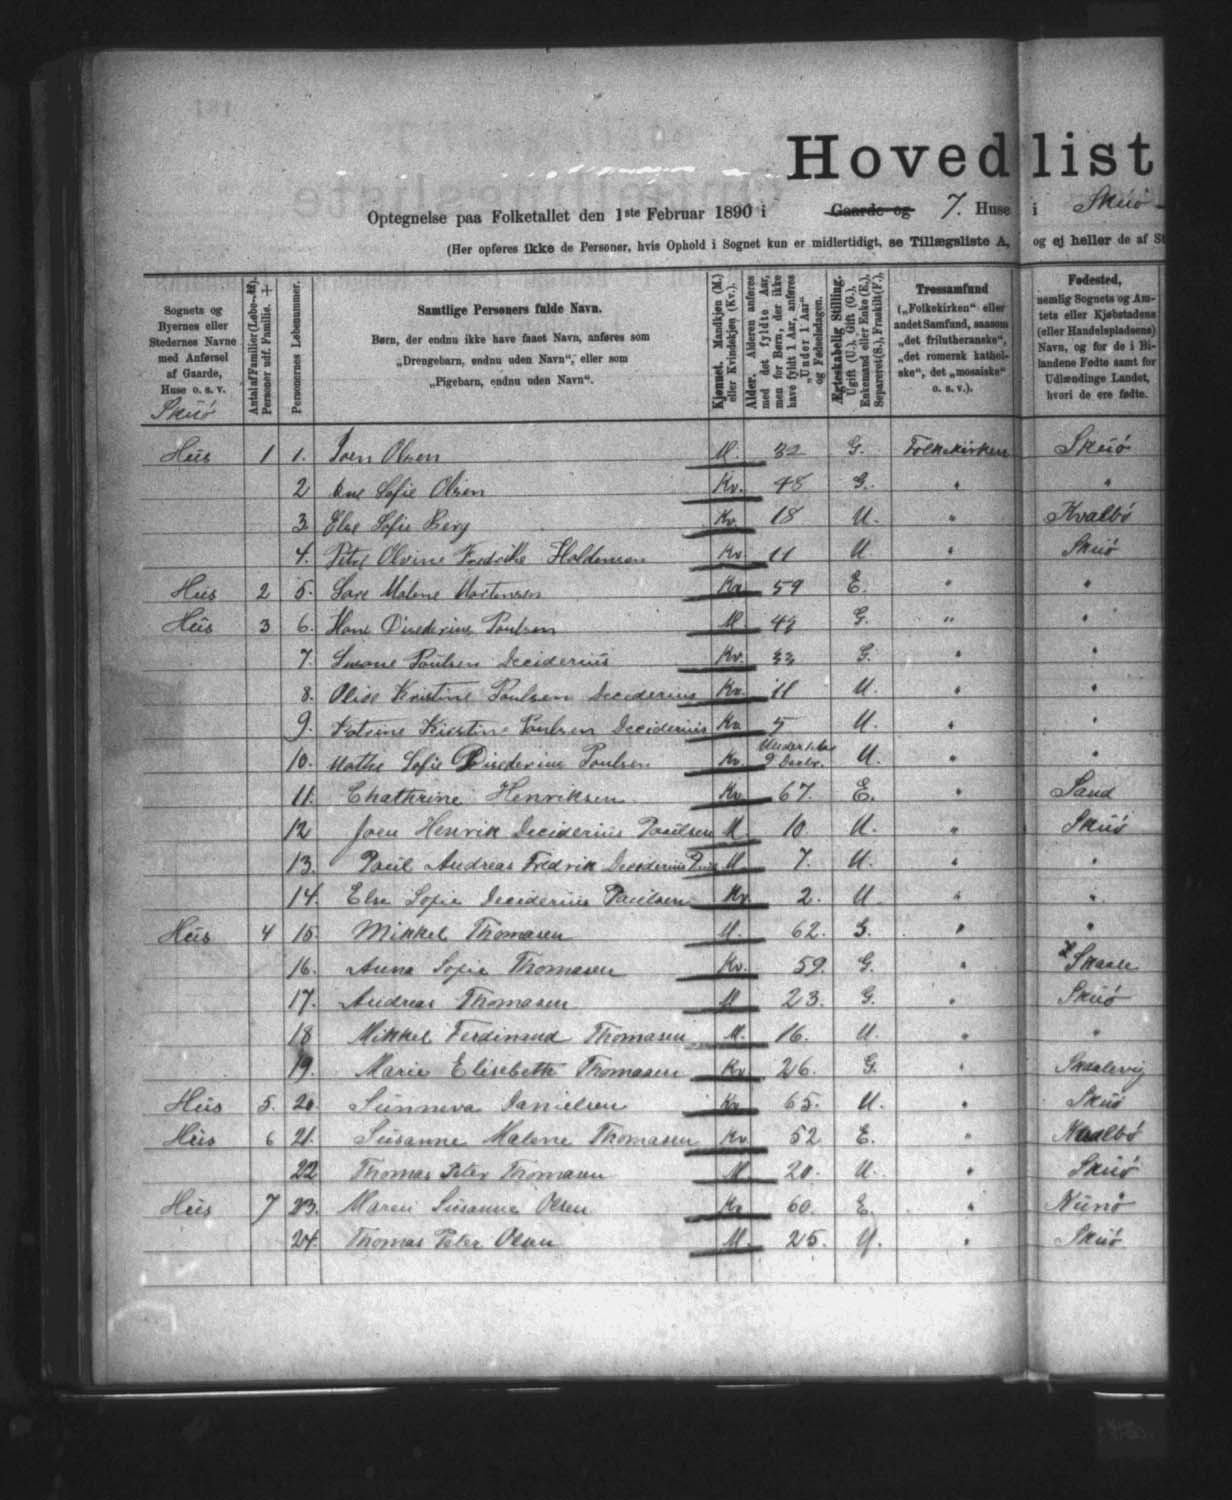 Hovedlist
Optegnelse paa Folketallet den 1ste Februar 1890 i Gaarde og 7. Huse i Skuø
(Her opføres ikke de Personer, hvis Ophold i Sognet kun er midlertidigt, se Tillægsliste A, og ej heller de af St
Sognets og Byernes eller Stedernes Navne med Anførsel af Gaarde, Huse o. s. v.
Skuø
Personernes Løbenummer.
Samtlige Personers fulde Navn.
Børn, der endnu ikke have faaet Navn, anføres som
„Drengebarn, endnu uden Navn“, eller som
„Pigebarn, endnu uden Navn“.
Kjønnet. Mandkjøn (M.) eller Kvindekjøn (Kv.).
Alder. Alderen anføres med det fyldte Aar, men for Børn, der ikke have fyldt 1 Aar, anføres „Under 1 Aar“ og Fødselsdagen.
Ægteskabelig Stilling. Ugift (U.), Gift (G.), Enkemand eller Enke (E.), Separeret (S.), Fraskilt (F.).
Trossamfund („Folkekirken“ eller andet Samfund, saasom „det frilutheranske“, „det romersk katholske“, det „mosaiske“ o. s. v.).
Fødested, nemlig Sognets og Amtets eller Kjøbstadens (eller Handelspladsens) Navn, og for de i Bilandene Fødte samt for Udlændinge Landet, hvori de ere fødte.
Hus 1 1. Joen Olsen M. 32 G. Folkekirken Skuø
2 Ane Sofie Olsen Kv. 48 G. " "
3. Else Sofie Berg Kv. 18 U. " Kvalbø
4. Fredrikke Kv. 11 U. " Skuø
Hus 2 5. Malene Mortensen Kv. 59 E. " "
Hus 3 6. Poulsen M. G. " "
7. Poulsen Deciderius Kv. 33 G. " "
8. Kristine Poulsen Deciderius Kv. 11 U. " "
9. Katrine Kirstine Poulsen Deciderius Kv. 5 U. " "
10. Sofie Poulsen Kv. Under 1 Aar U. " "
11. Chathrine Henriksen Kv. 67. E. " Sand
12 Joen Henrik Deciderius Paulsen M. 10. U. " Skuø
13. Paul Andreas Fredrik Deciderius M. 7. U. " "
14. Else Sofie Deciderius Paulsen Kv. 2. U. " "
Hus 4 15. Mikkel Thomasen M. 62. G. " "
16. Anna Sofie Thomasen Kv. 59. G. "
17. Andreas Thomasen M. 23. G. " Skuø
18 Mikkel Ferdinand Thomasen M. 16. U. " "
19. Marie Elisebeth Thomasen Kv. 26. G. " Skaalevig
Hus 5. 20. Sunneva Danielsen Kv. 65. U. " Skuø
Hus 6 21. Susanne Malene Thomasen Kv. 52 E. "
22 Thomas Peter Thomasen M. 20. U. " Skuø
Hus 7 23. Maren Susanne Olsen Kv. 60. E. "
24. Thomas Peter Olsen M. 25. U. " Skuø